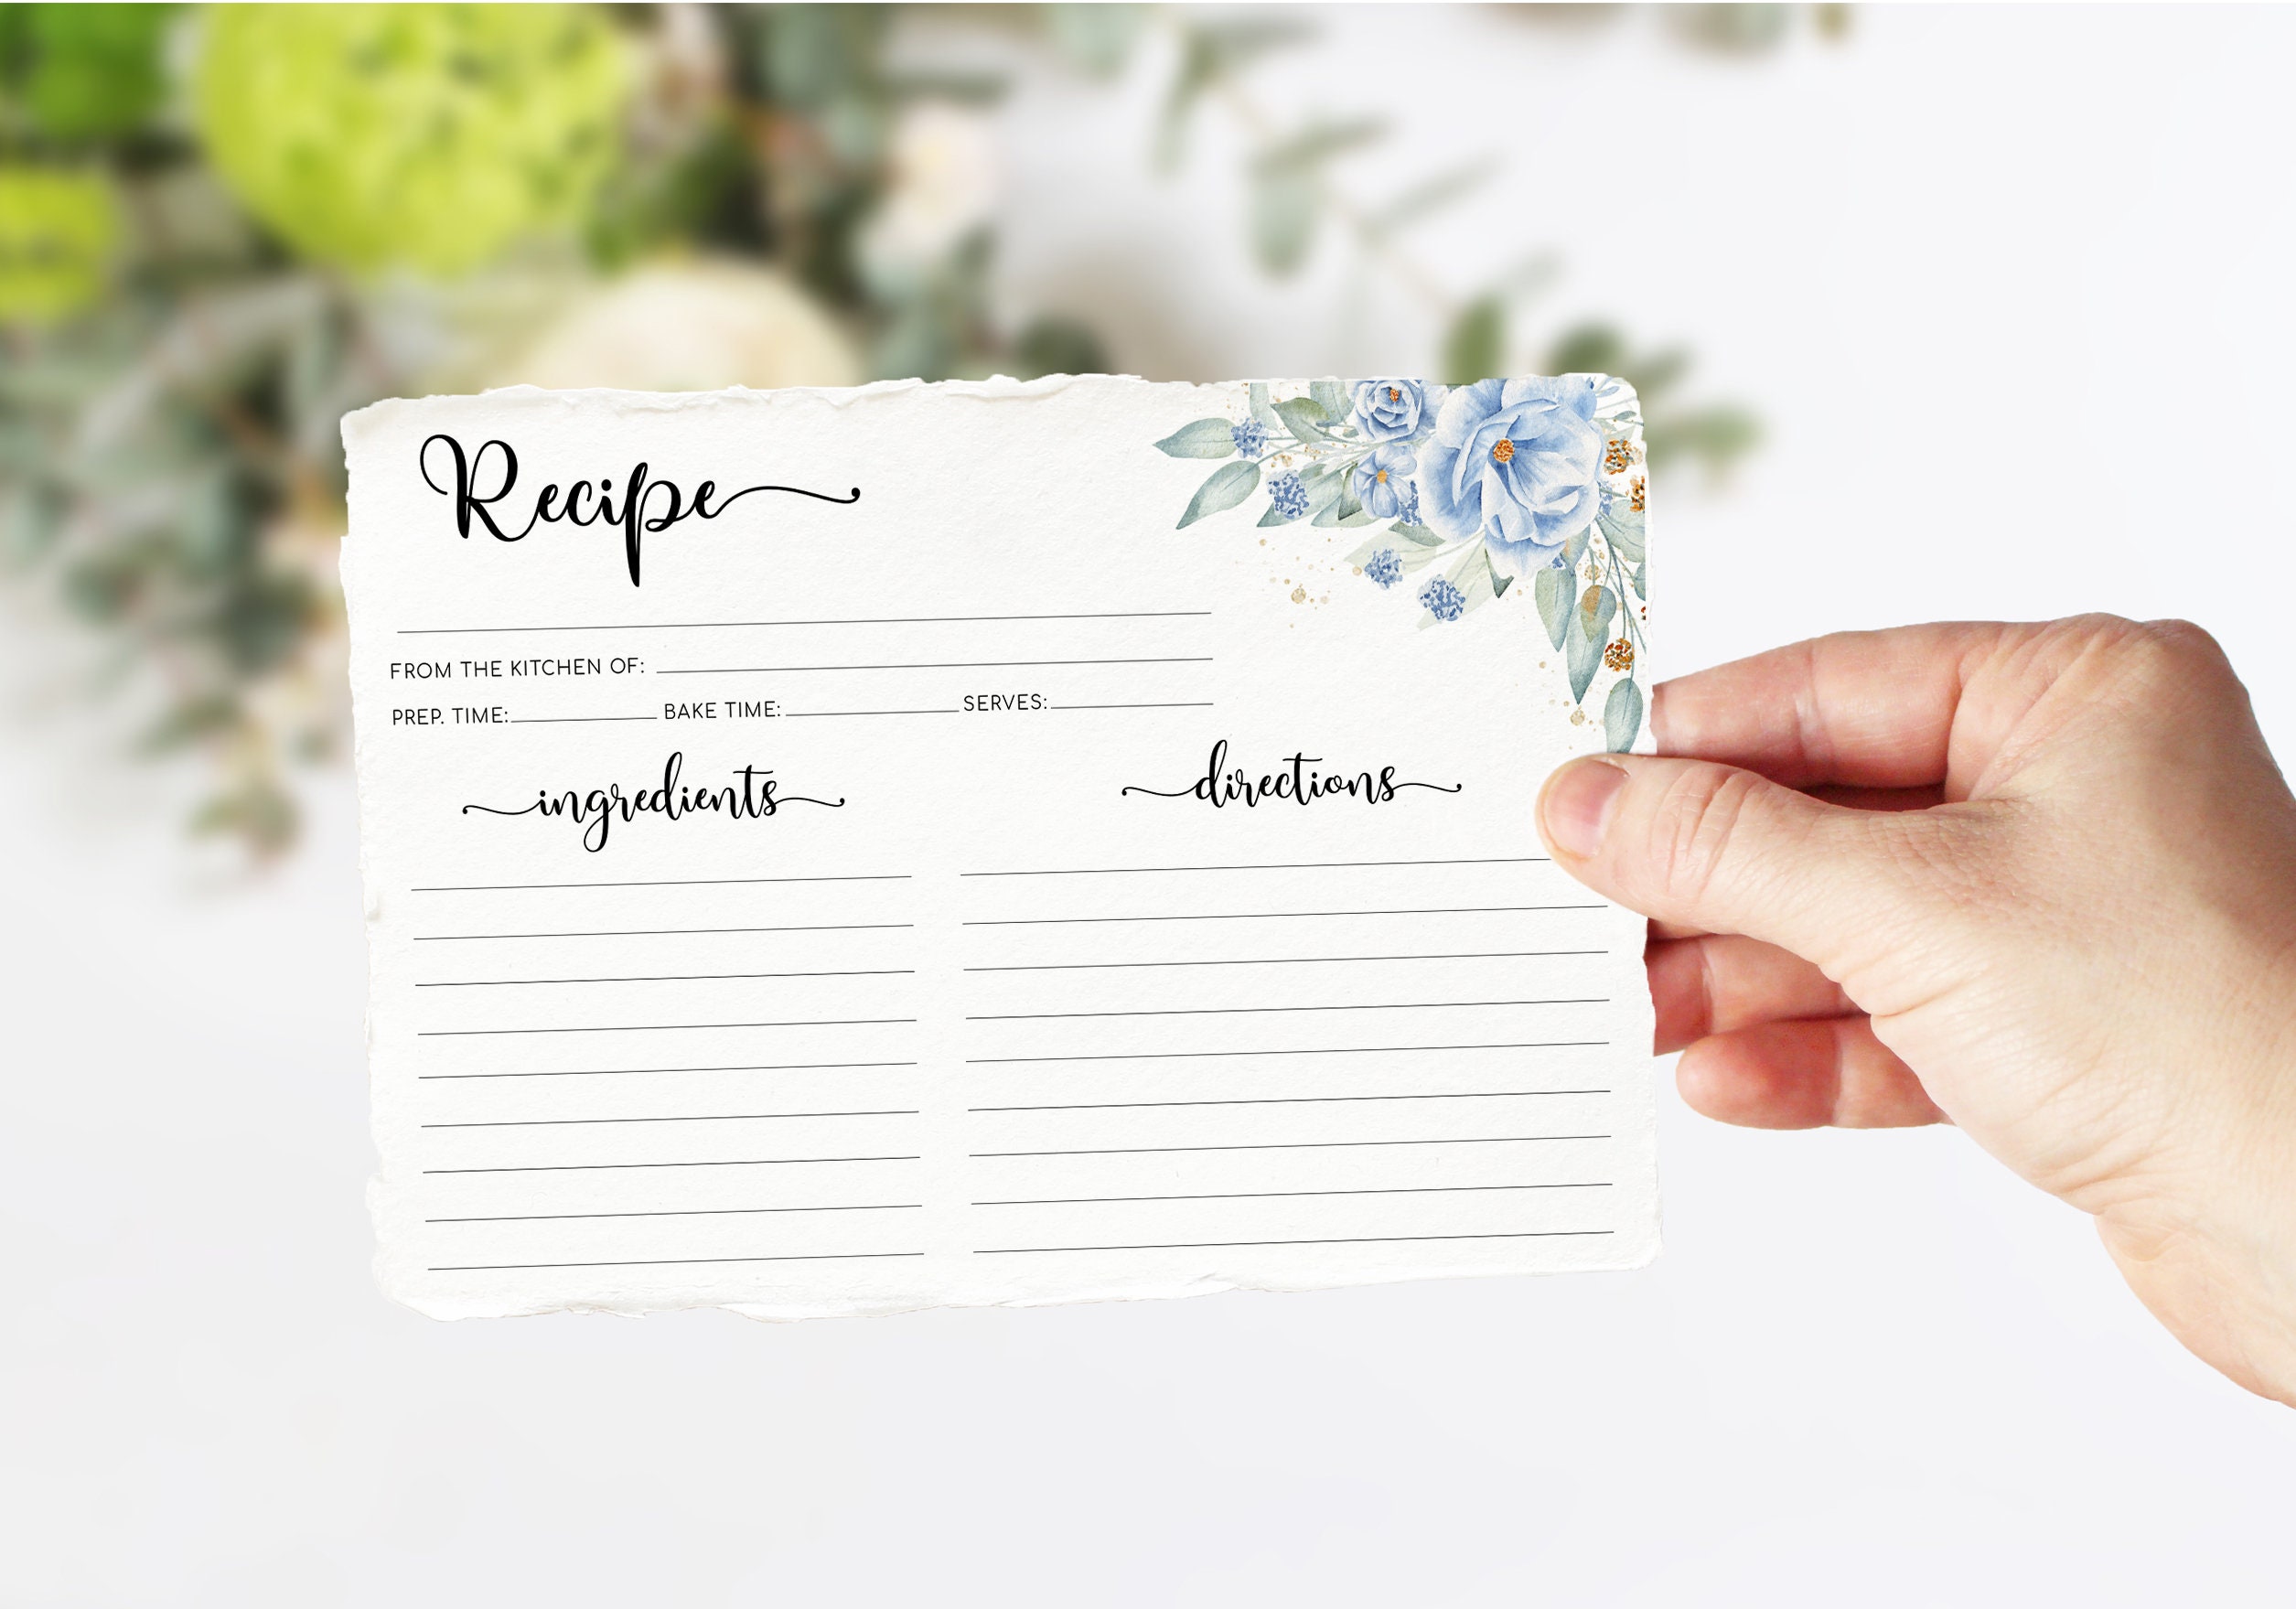 Recipe
FROM THE KITCHEN OF:
PREP. TIME: BAKE TIME: SERVES:
ingredients directions